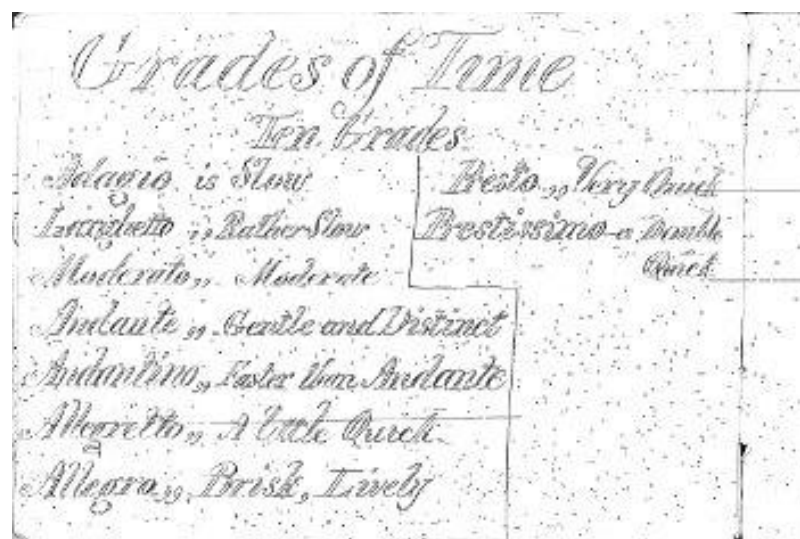 Grades of Time
Ten Grades
Adagio is Slow
Larghetto ,, Rather Slow
Moderato ,, Moderate
Andante ,, Gentle and Distinct
Andantino ,, Faster than Andante
Allegretto ,, A little Quick
Allegro ,, Brisk, Lively
Presto ,, Very Quick
Prestissimo - a Double
Quick